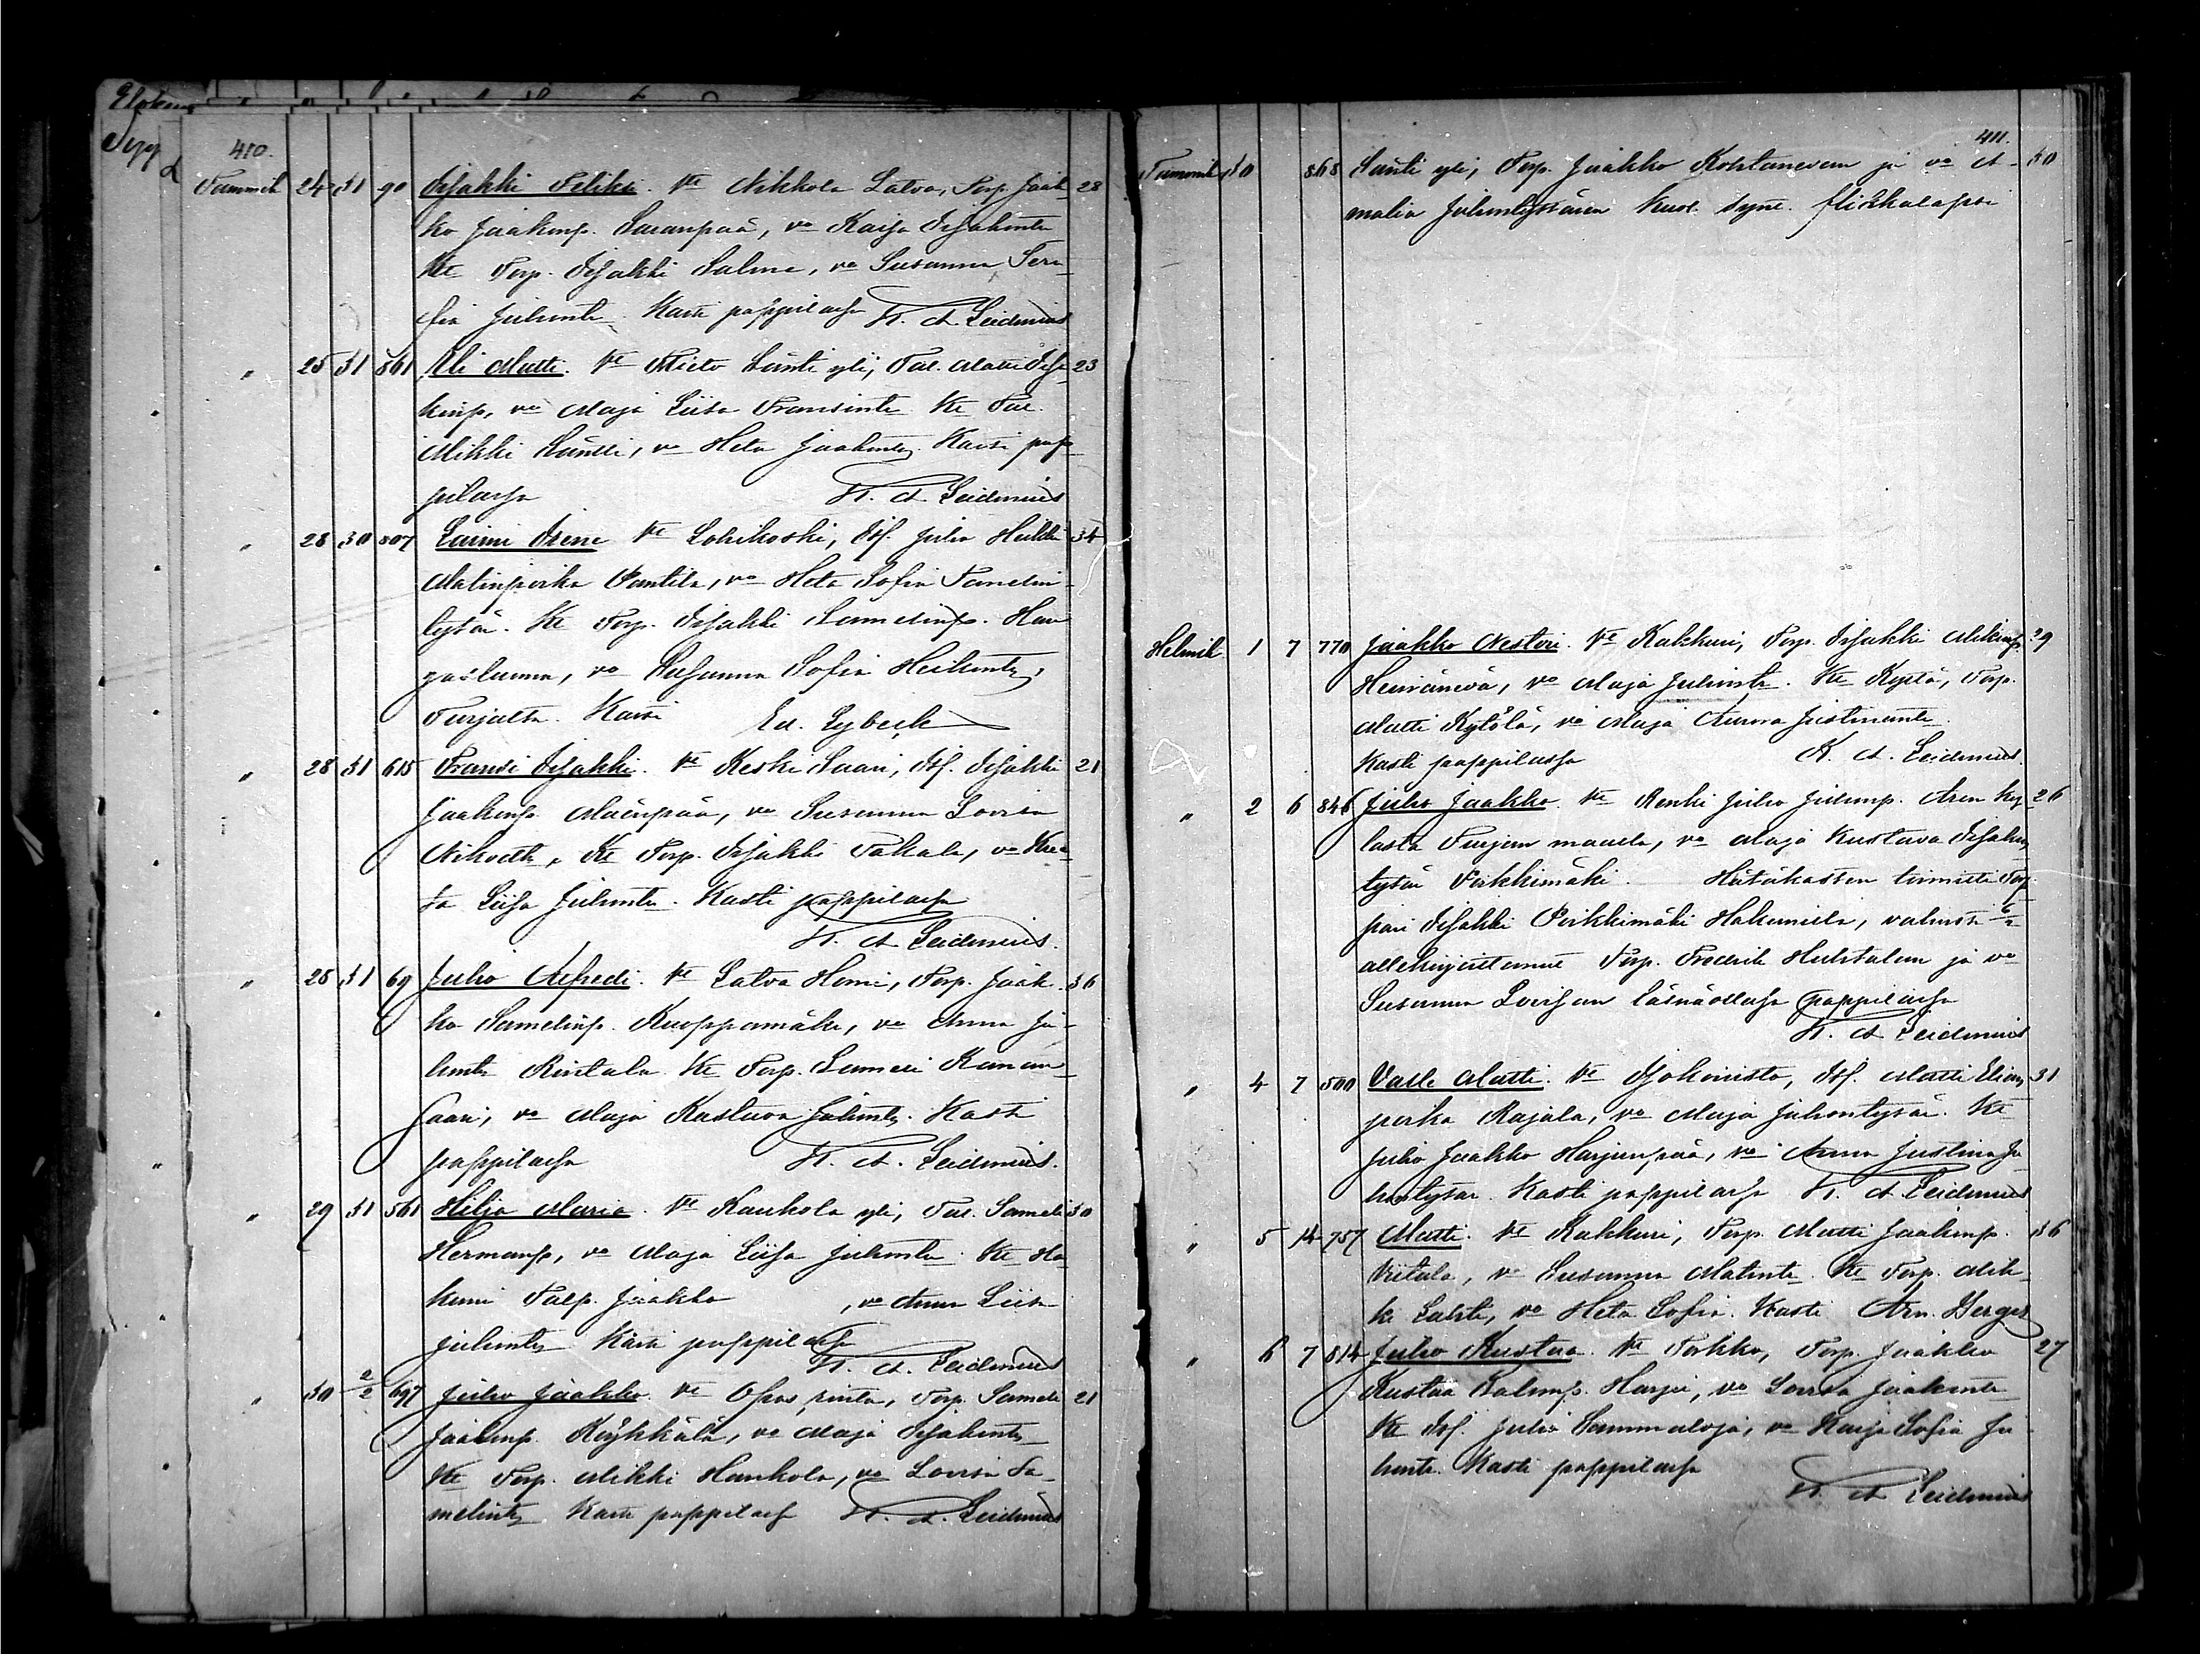 410.
Tammik 24 31 90 Iisakki Feliksi. Vt Nikkola Latva, Torp. Jaak- 28
ko Jaakonp. Saranpää, vo Kaisa Iisakintr
Kt Torp. Iisakki Salmi, vo Susanna Sera-
fia Juhontr. Kasti pappilassa K. A. Leidenius
" 25 31 861 Eli Matti. Vt Nieto Länti yli, Tal. Matti Iisa- 23
kinp, vo Maja Liisa Fransintr. Kt Tal.
Mikki Läntti, vo Heta Jaakontr. Kasti pap-
pilassa K. A. Leidenius
" 28 30 807 Laimi Irene Vt Lohikoski, Itsl. Juho Heikki 34
Matinpoika Pantila, vo Heta Sofia Samelin-
tytär. Kt Torp. Iisakki Samelinp. Han
gasluoma, vo Susanna Sofia Heikintr,
Turjalta. Kasti Ed. Lybeck
" 28 31 615 Fransi Iisakki. Vt Keski Saari, Itsl. Iisakki 21
Jaakonp Mäenpää, vo Susanna Lovisa
Nikod:tr, Kt Torp. Iisakki Takala, vo Kree-
ta Liisa Juhontr. Kasti pappilassa
K. A. Leidenius.
" 28 31 69 Juho Alfredi. Vt Latva Homi, Torp. Jaak- 36
ko Samelinp. Kuoppamäki, vo Anna Ju-
hontr Rintala Kt Torp. Sameli Kanan-
saari, vo Maja Kustava Juhontr. Kasti
pappilassa K. A. Leidenius.
" 29 31 561 Hilja Maria. Vt Kauhola yli, Tal. Sameli 30
Hermanp, vo Maja Liisa Juhontr. Kt Ha-
kuni Talp. Jaakko , vo Anna Liisa
Juhontr Kasti pappilassa
K. A. Leidenius
" 30 2/2 697 Juho Jaakko. Vt Ojas rinta, Torp. Sameli 21
Jaakonp. Röykkälä, vo Maja Iisakintr
Kt Torp. Mikki Hankola, vo Lovisa Sa-
melintr Kasti pappilass K. A. Leidenius
411.
Tammik 30 868 Länti yli, Torp. Jaakko Kohtanevan ja vo A- 30
malia Juhontyttären kuol. synt. flikkalapsi
Helmik. 1 7 770 Jaakko Nestori. Vt Kakkuri, Torp. Iisakki Mikinp. 29
Heinäneva, vo Maja Juhontr. Kt Kyrlä, Torp.
Matti Kytölä, vo Maja Aurora Justinantr
Kasti pappilassa K. A. Leidenius.
" 2 6 846 Juho Jaakko. Vt Renki Juho Juhonp. Aron ky- 26
lasta Turjan maalla, vo Maja Kustava Iisakin
tytär Pirkkimäki. Hätäkasteen toimitti Torp-
pari Iisakki Pirkkimäki Hakunilla, vahvist. 6/2
allekirjoittanut Torp. Fredrik Huhtalan ja vo
Susanna Lovisan läsnäollessa pappilassa
K. A. Leidenius
" 4 7 500 Valle Matti. Vt Ojakoristo, Itsl. Matti Elian 31
poika Rajala, vo Maja Juhontytär. Kt
Juho Jaakko Harjunpää, vo Anna Justina Ju-
hontytar. Kasti pappilassa K. A. Leidenius
" 5 14 757 Matti. Vt Kakkuri, Torp. Matti Jaakonp. 36
Viitala, vo Susanna Matintr. Kt Torp. Mik-
ki Lahti, vo Heta Sofia. Kasti Arn. Berger
" 6 7 814 Juho Kustaa. Vt Porkko, Torp. Jaakko 27
Kustaa Kalenp. Harju, vo Lovisa Jaakontr
Kt Itsl. Juho Sammaloja, vo Kaisa Sofia Ju-
hontr. Kasti pappilassa
K. A. Leidenius